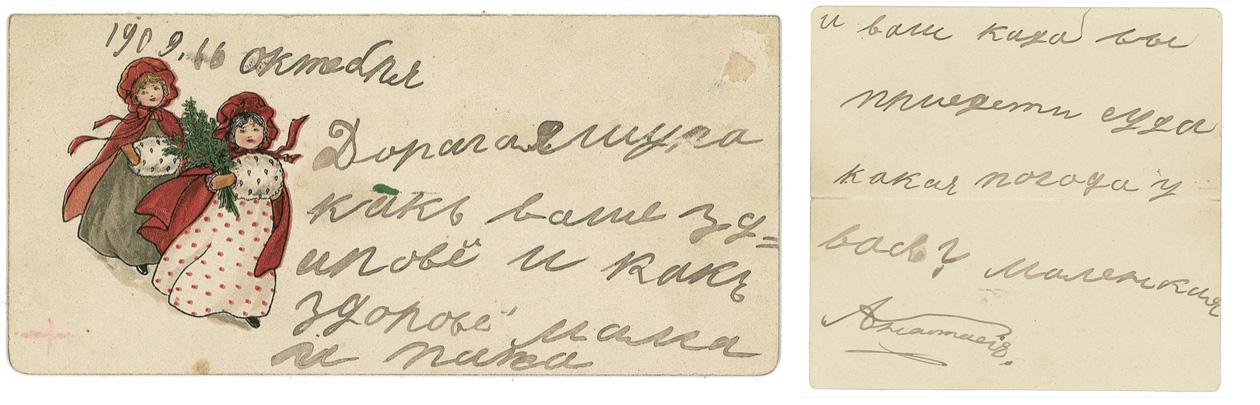 1909. 16 октября
Дорогая Шура
какъ ваше зд=
оровё и какъ
здоровё мама
и папа
и ваш кода вы
приедети суда
какая погода у
вас? маленская
Анастасiя.